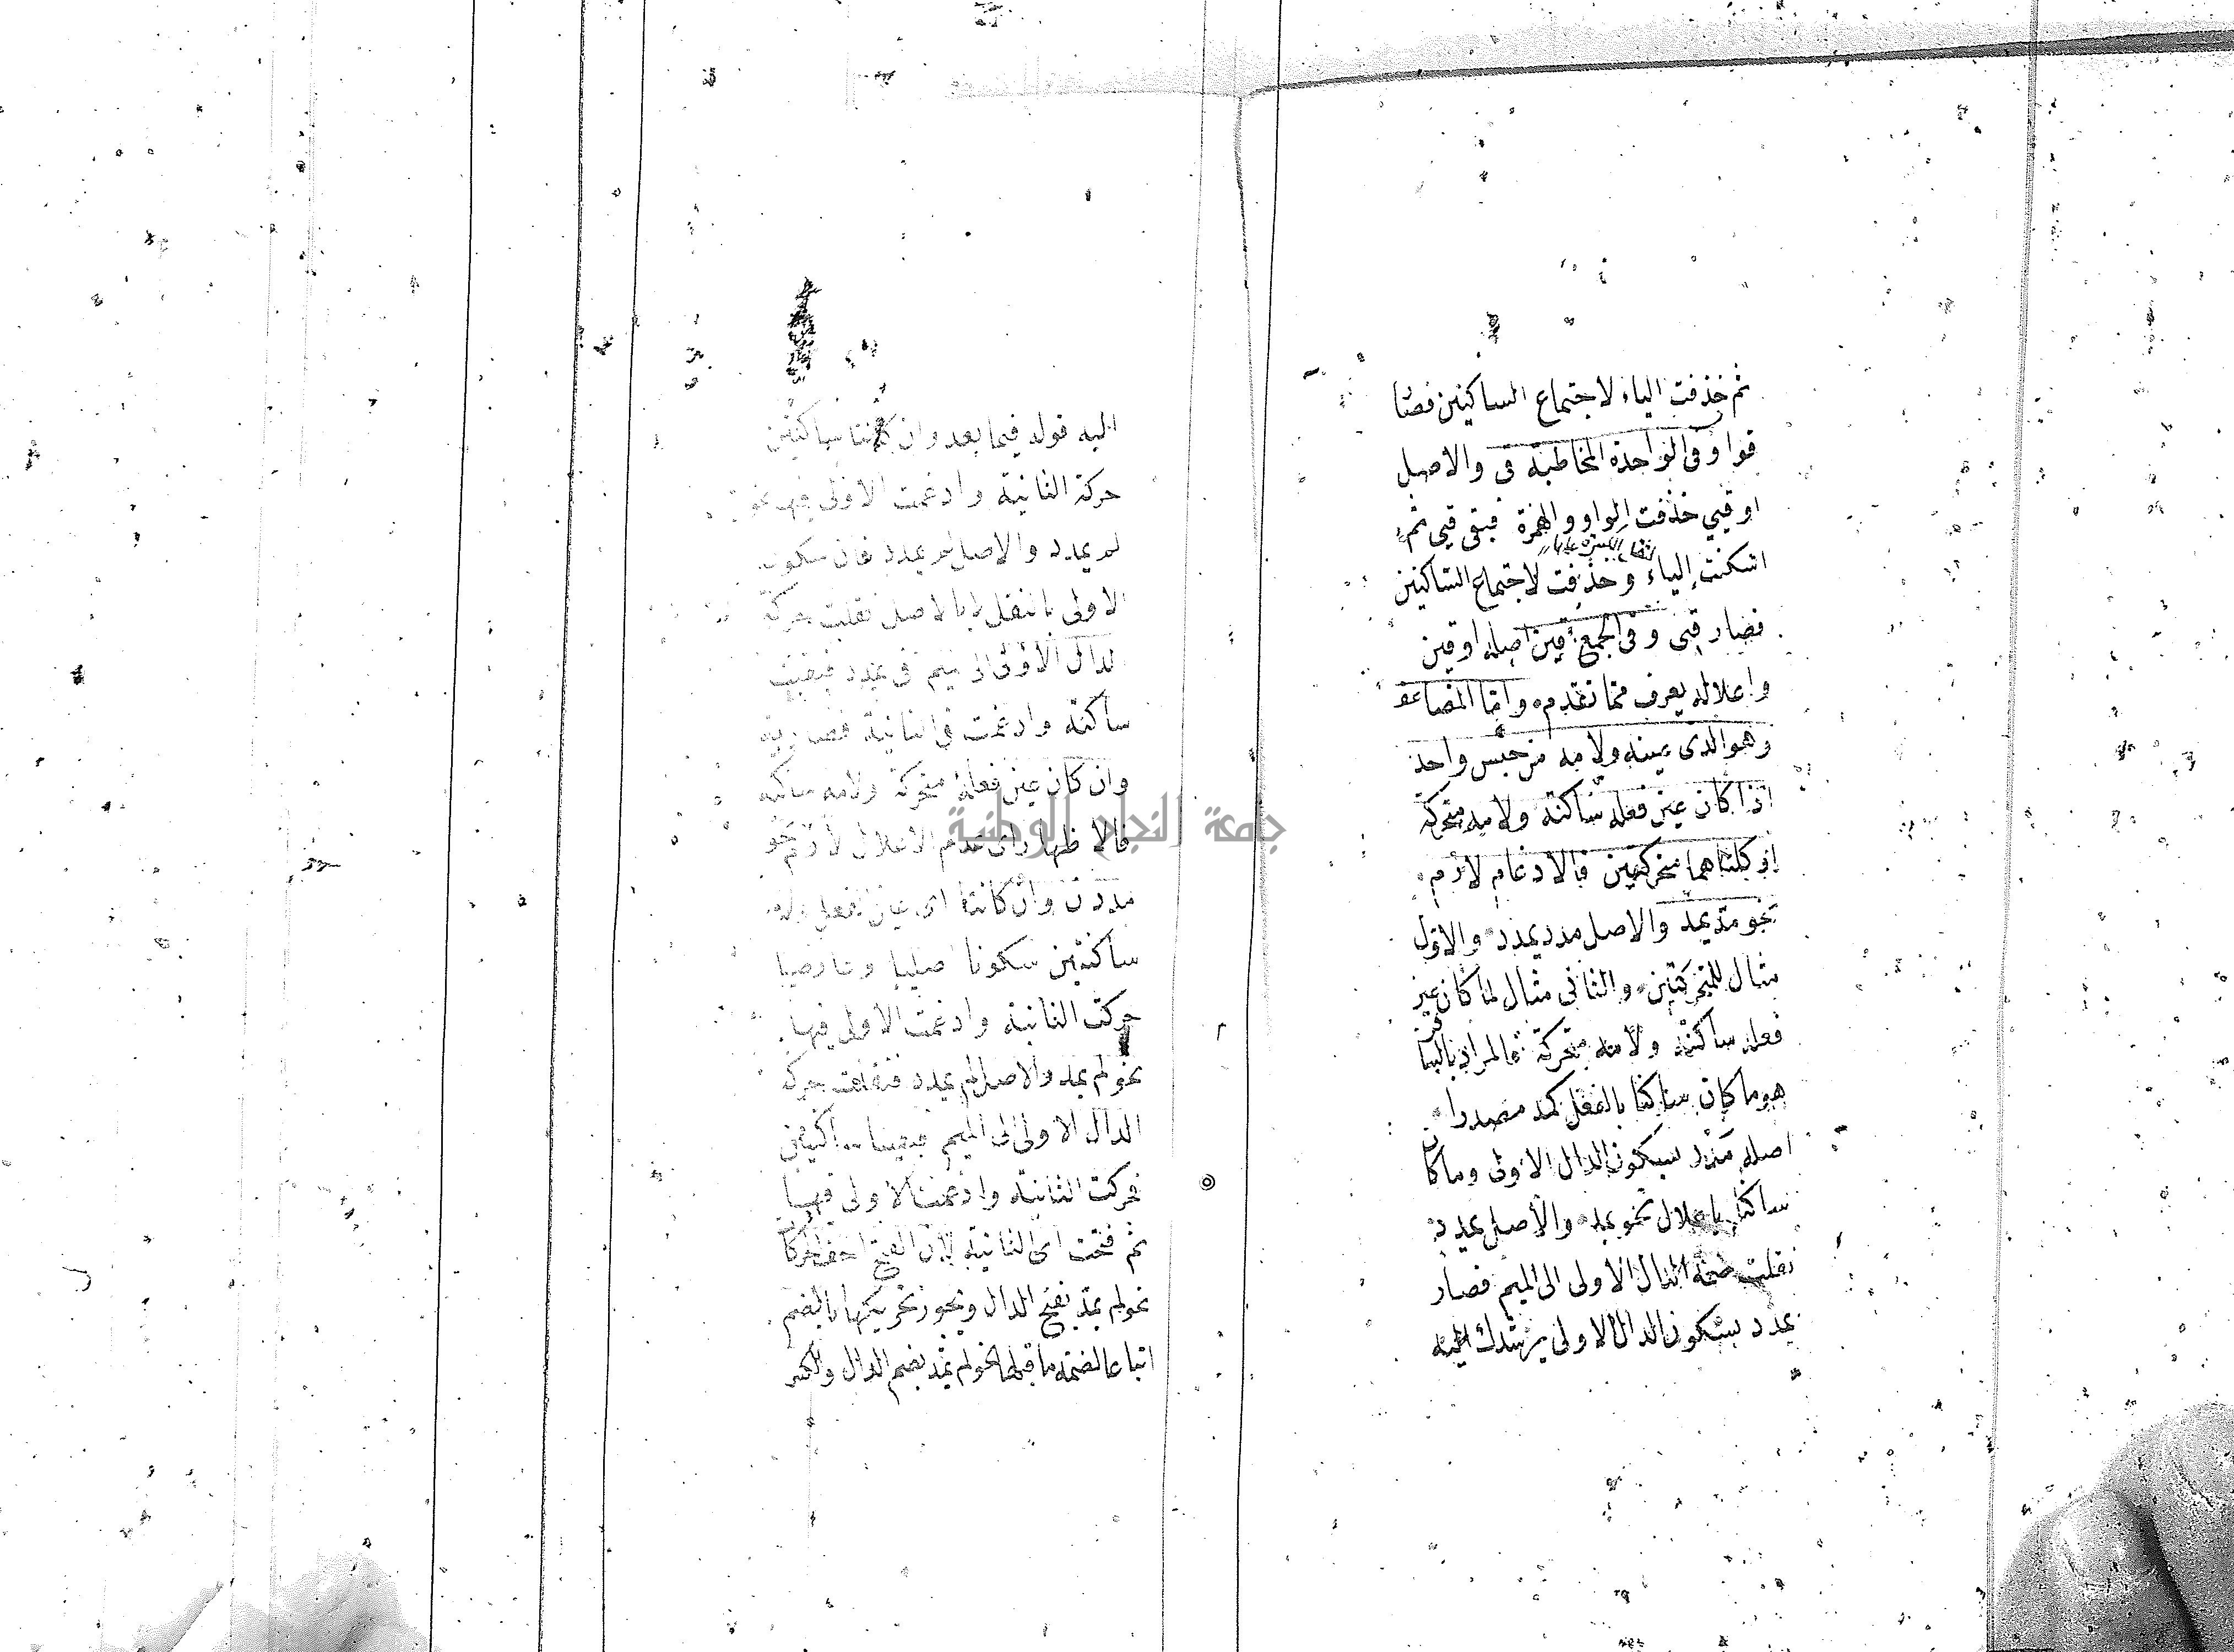 ثم حذفت الياء لاجتماع الساكنين فصا
قوا وفى الواحدة المخاطبة قى والاصل
اوقيي حذفت الواو والهمزة فبقى قيى ثم
لثقل الكسرة عليها
اسكنت الياء وحذفت لاجتماع الساكنين
فصار قى وفى الجمع قين اصله اوقين
واعلاله يعرف مما تقدم واما المضاعف
وهو الذى عينه ولامه من جنس واحد
اذا كان عين فعله ساكنة ولامه متحركة
او كلتاهما متحركتين فالادغام لازم
نحو مد يمد والاصل مدد يمدد والاول
مثال للمتحركتين والثانى مثال لما كان عين
فعله ساكنة ولامه متحركة فالمراد بالسا
هو ما كان ساكنا بالفعل كمد مصدرا
اصله مدد بسكون الدال الاولى وما كان
ساكنا باعلال نحو يمد والاصل يمدد
نقلت ضمة الدال الاولى الى الميم فصار
يمدد بسكون الدال الاولى يرشدك اليه
اليه قوله فيما بعد وان كانتا ساكنتين
حركة الثانية وادغمت الاولى فيها نحو
لم يمدد والاصل لم يمدد فان سكون
الاولى بالنقل لا بالاصل نقلت حركة
الدال الاولى الى ميم فى يمدد فبقيت
ساكنة وادغمت فى الثانية
وان كان عين فعله متحركة ولامه ساكنة
فالاظهار اى عدم الاعلال لازم نحو
مددن وان كانتا اى عين الفعل ولامه
ساكنتين سكونا اصليا وعارضيا
حركت الثانية وادغمت الاولى فيها
نحو لم يمد والاصل لم يمدد فنقلت حركة
الدال الاولى الى الميم فبقيتا ساكنتين
فحركت الثانية وادغمت الاولى فيها
ثم فتحت اى الثانية لان الفتح اخف الحركات
نحو لم يمد بفتح الدال ويجوز تحريكها بالضم
اتباعا لضمة ما قبلها نحو لم يمد بضم الدال والكسر
جامعة النجاح الوطنية